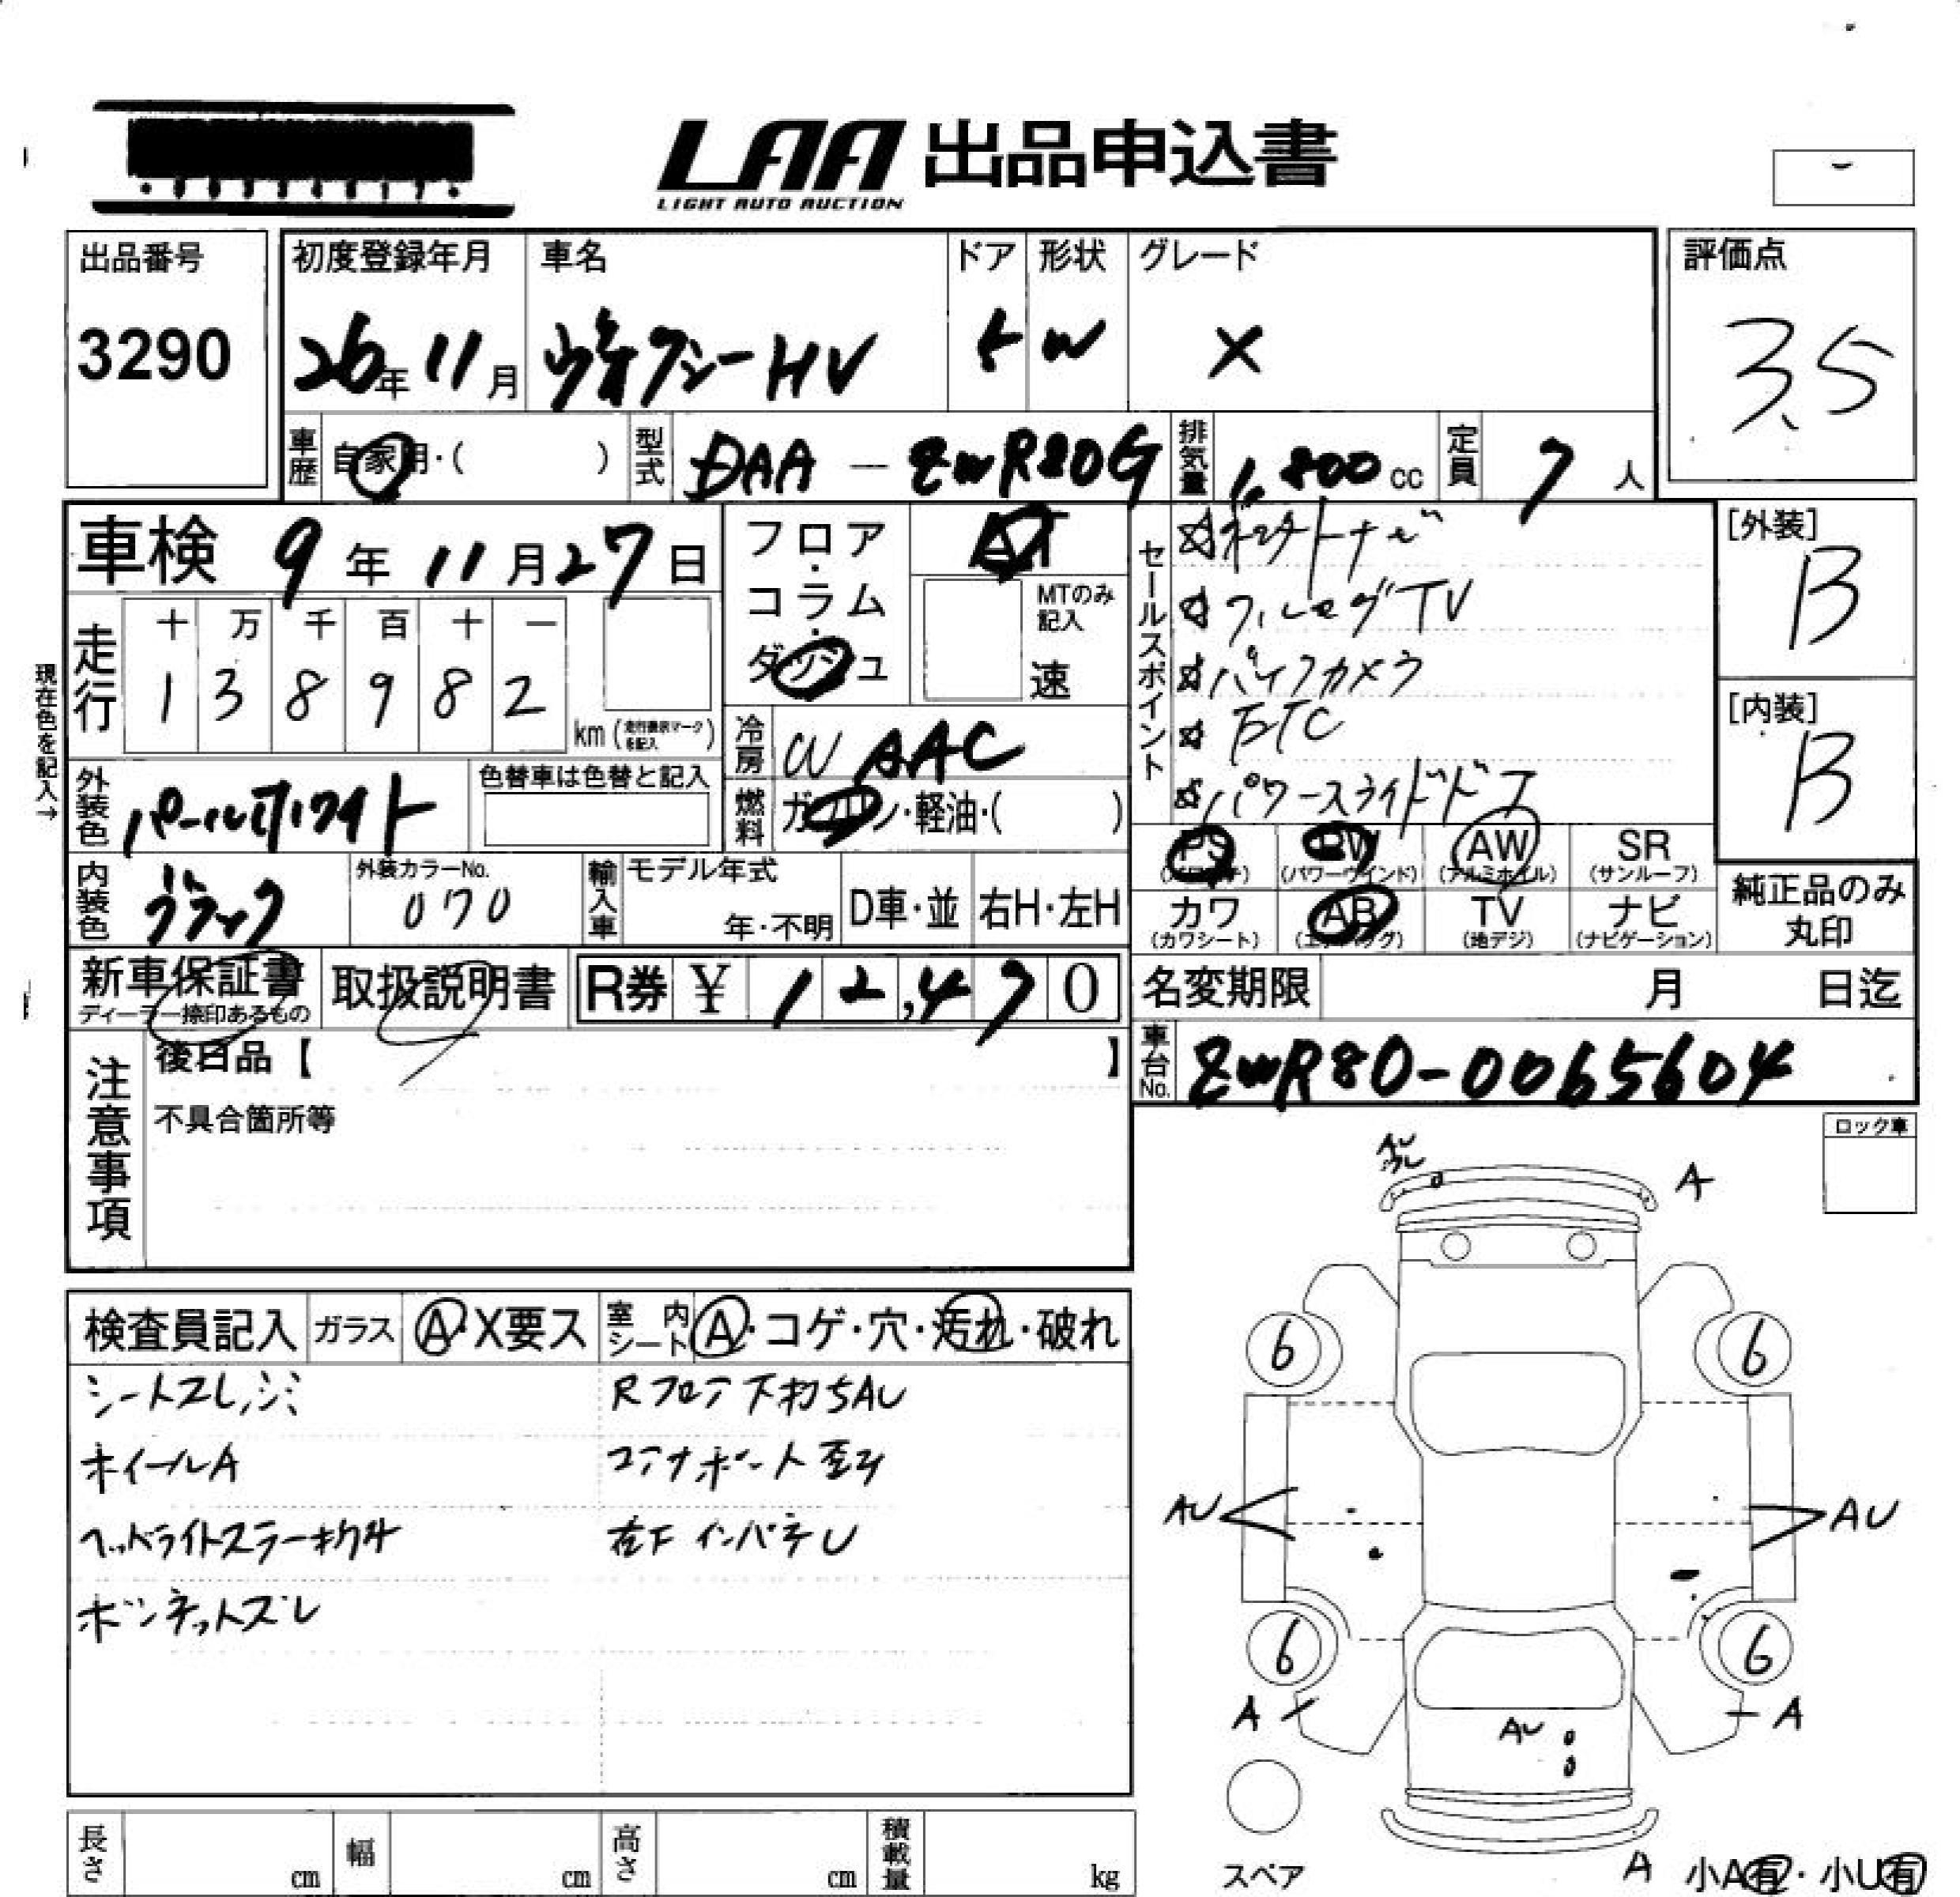 LAA 出品申込書
LIGHT AUTO AUCTION
出品番号
3290
初度登録年月
26年 11月
車名
ヴォクシーHV
ドア
5
形状
W
グレード
X
評価点
3.5
車歴
自家用・( )
型式
DAA-ZWR80G
排気量
1,800 cc
定員
7 人
車検 9年 11月 27日
走行
十 万 千 百 十 一
1 3 8 9 8 2
km(走行書換マークを記入)
現在色を記入→
外装色
パールホワイト
色替車は色替と記入
内装色
ブラック
外装カラーNo.
070
輸入車
モデル年式
年・不明
D車・並
右H・左H
フロア・コラム・ダッシュ
AT
MTのみ記入
速
冷房
W AAC
燃料
ガソリン・軽油・( )
セールスポイント
☆ フルセグTV
☆ バックカメラ
☆ ETC
☆ パワースライドドア
[外装]
B
[内装]
B
PS
(パワステ)
PW
(パワーウインド)
AW
(アルミホイル)
SR
(サンルーフ)
カワ
(カワシート)
AB
(エアバッグ)
TV
(地デジ)
ナビ
(ナビゲーション)
純正品のみ丸印
新車保証書
ディーラー捺印あるもの
取扱説明書
R券 ¥ 12,470
名変期限 月 日迄
車台No.
ZWR80-0065604
注意事項
後日品【 】
不具合箇所等
ロック車
検査員記入
ガラス
A・X要ス
室内シート
A・コゲ・穴・汚れ・破れ
シートスレ,シミ
Rフロア下打ちAU
ホイールA
コアサポート歪み
ヘッドライトステー
右F インパネU
ボンネットズレ
AU
A
6
6
AU
AU
6
6
A
A
AU
A
スペア
小A有・小U有
長さ cm
幅 cm
高さ cm
積載量 kg